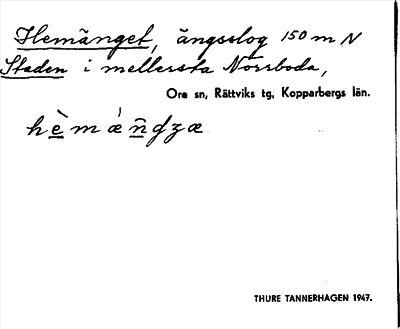 Hemänget, ängsslog 150 m N
Staden i mellersta Norrboda,
Ore sn, Rättviks tg, Kopparbergs län.
hèmǽnʤæ
THURE TANNERHAGEN 1947.